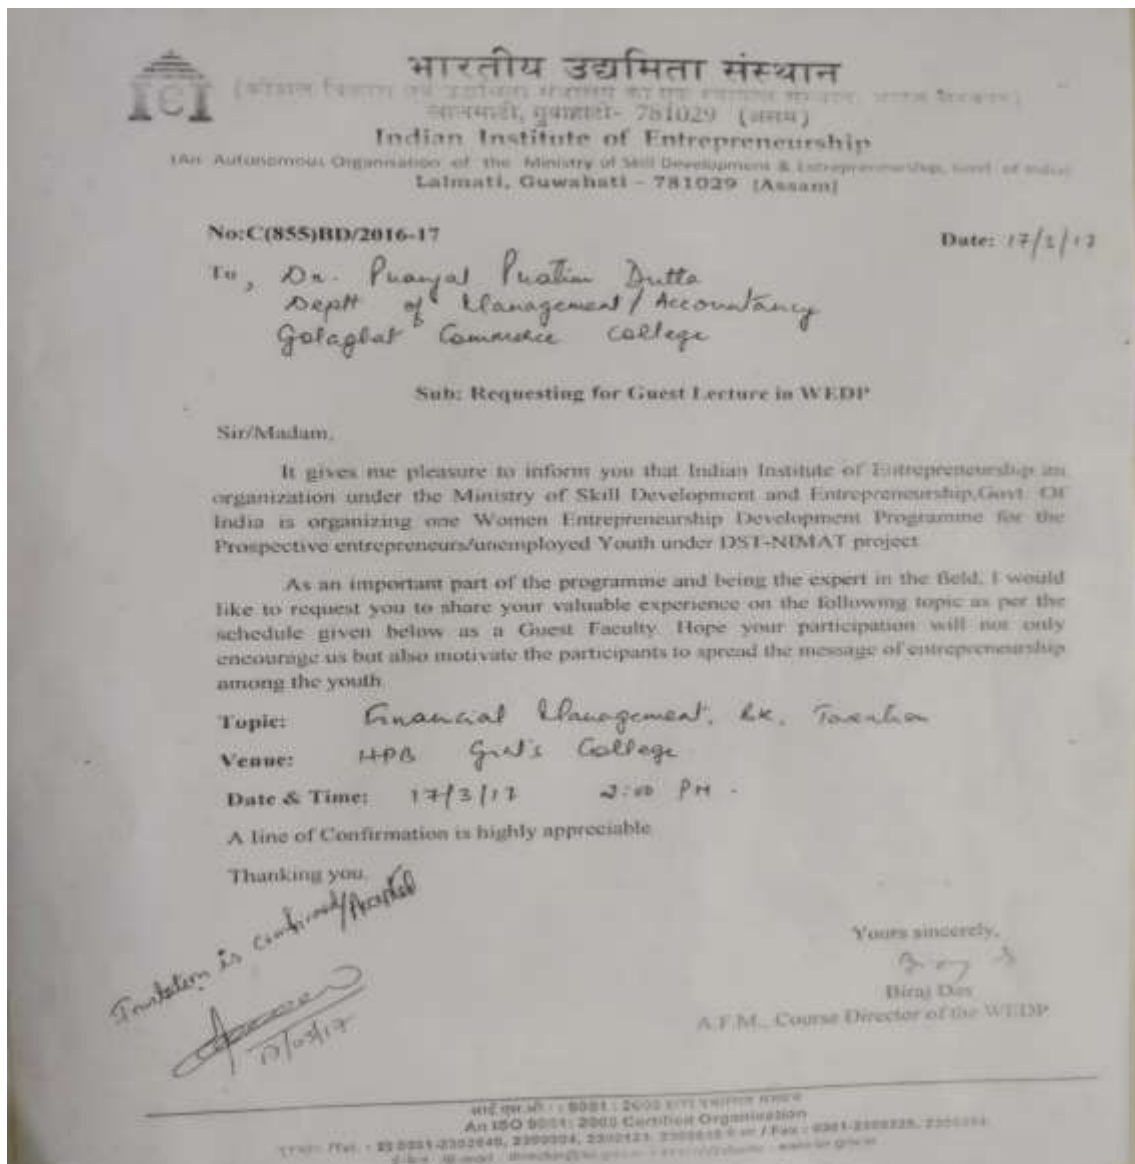 भारतीय उद्यमिता संस्थान
गुवाहाटी- 781029 (असम)
Indian Institute of Entrepreneurship
(An Autonomous Organisation of the Ministry of Skill Development & Entrepreneurship, Govt. of India)
Lalmati, Guwahati - 781029 (Assam)
No:C(855)BD/2016-17
Date: 17/3/17
To, Dr. Pranjal Pratim Dutta
Deptt of Management/Accountancy
Golaghat Commerce College
Sub: Requesting for Guest Lecture in WEDP
Sir/Madam,
It gives me pleasure to inform you that Indian Institute of Entrepreneurship an
organization under the Ministry of Skill Development and Entrepreneurship,Govt. Of
India is organizing one Women Entrepreneurship Development Programme for the
Prospective entrepreneurs/unemployed Youth under DST-NIMAT project
As an important part of the programme and being the expert in the field, I would
like to request you to share your valuable experience on the following topic as per the
schedule given below as a Guest Faculty. Hope your participation will not only
encourage us but also motivate the participants to spread the message of entrepreneurship
among the youth
Topic: Financial Management, BK, Taxation
Venue: HPB Girl's College
Date & Time: 17/3/17 2:00 PM.
A line of Confirmation is highly appreciable
Thanking you,
Invitation is confirmed/Accepted
17/03/17
Yours sincerely,
Biraj Das
A.F.M., Course Director of the WEDP
An ISO 9001: 2000 Certified Organisation